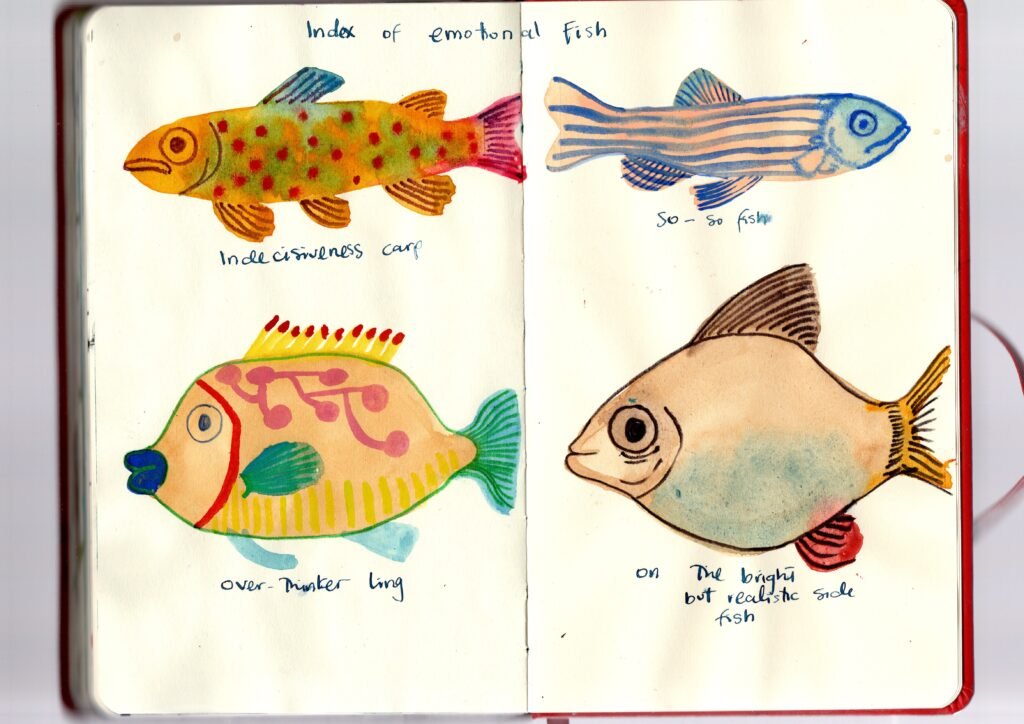 Index of emotional Fish
Indecisiveness carp
So - so fish
over-Thinker ling
on The bright
but realistic side
fish